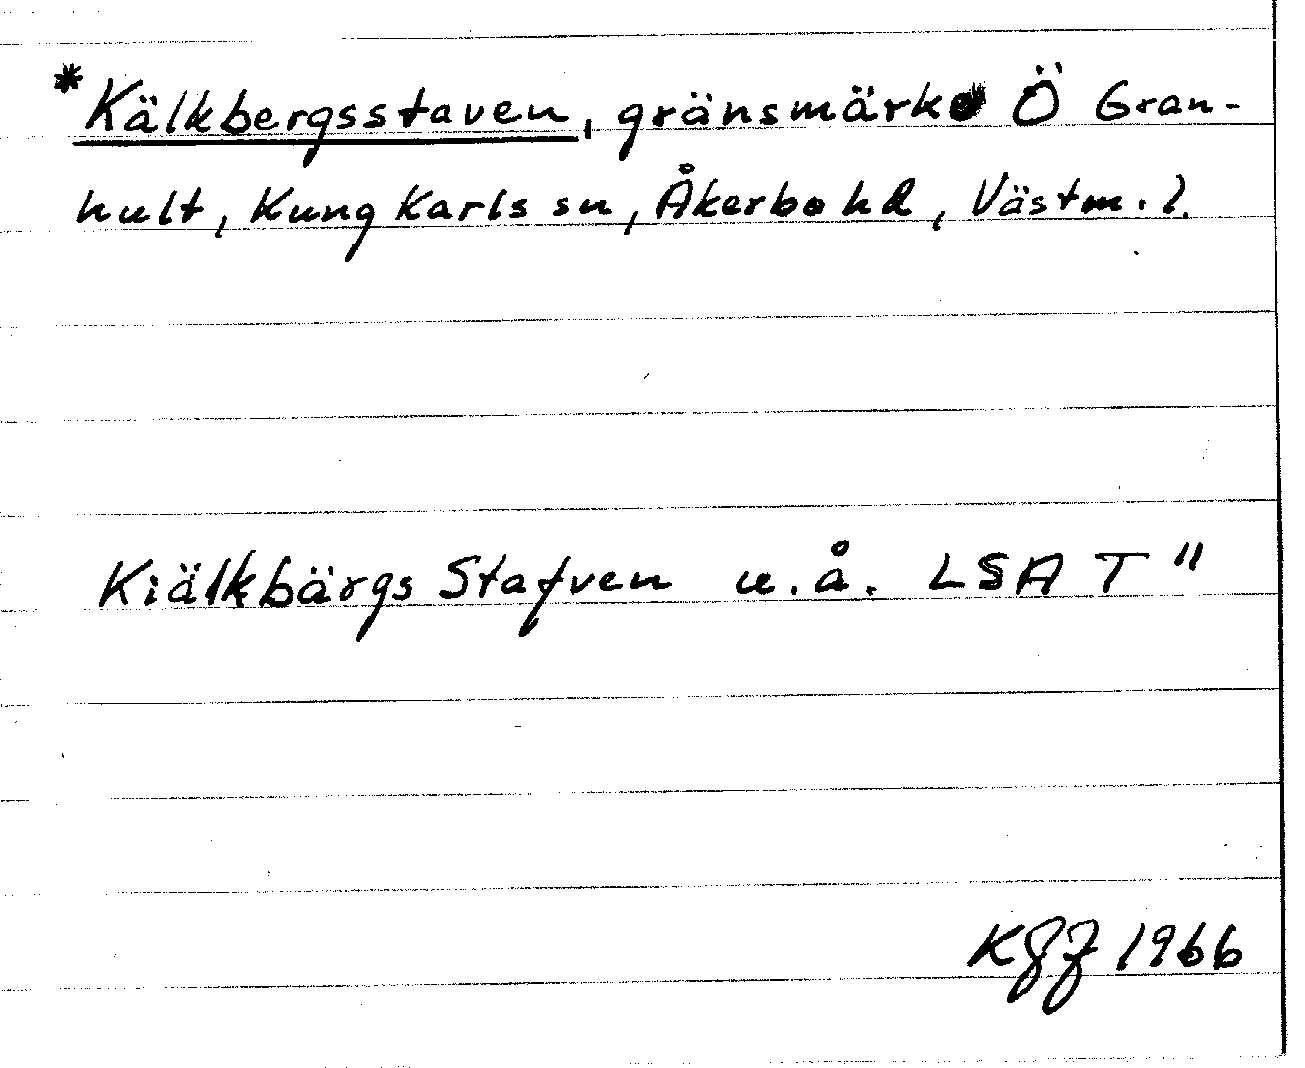 *Kälkbergsstaven, gränsmärke Ö Gran-
hult, Kung Karls sn, Åkerbo hd, Västm. l.
Kiälkbärgs Stafven u.å. LSA T"
1966